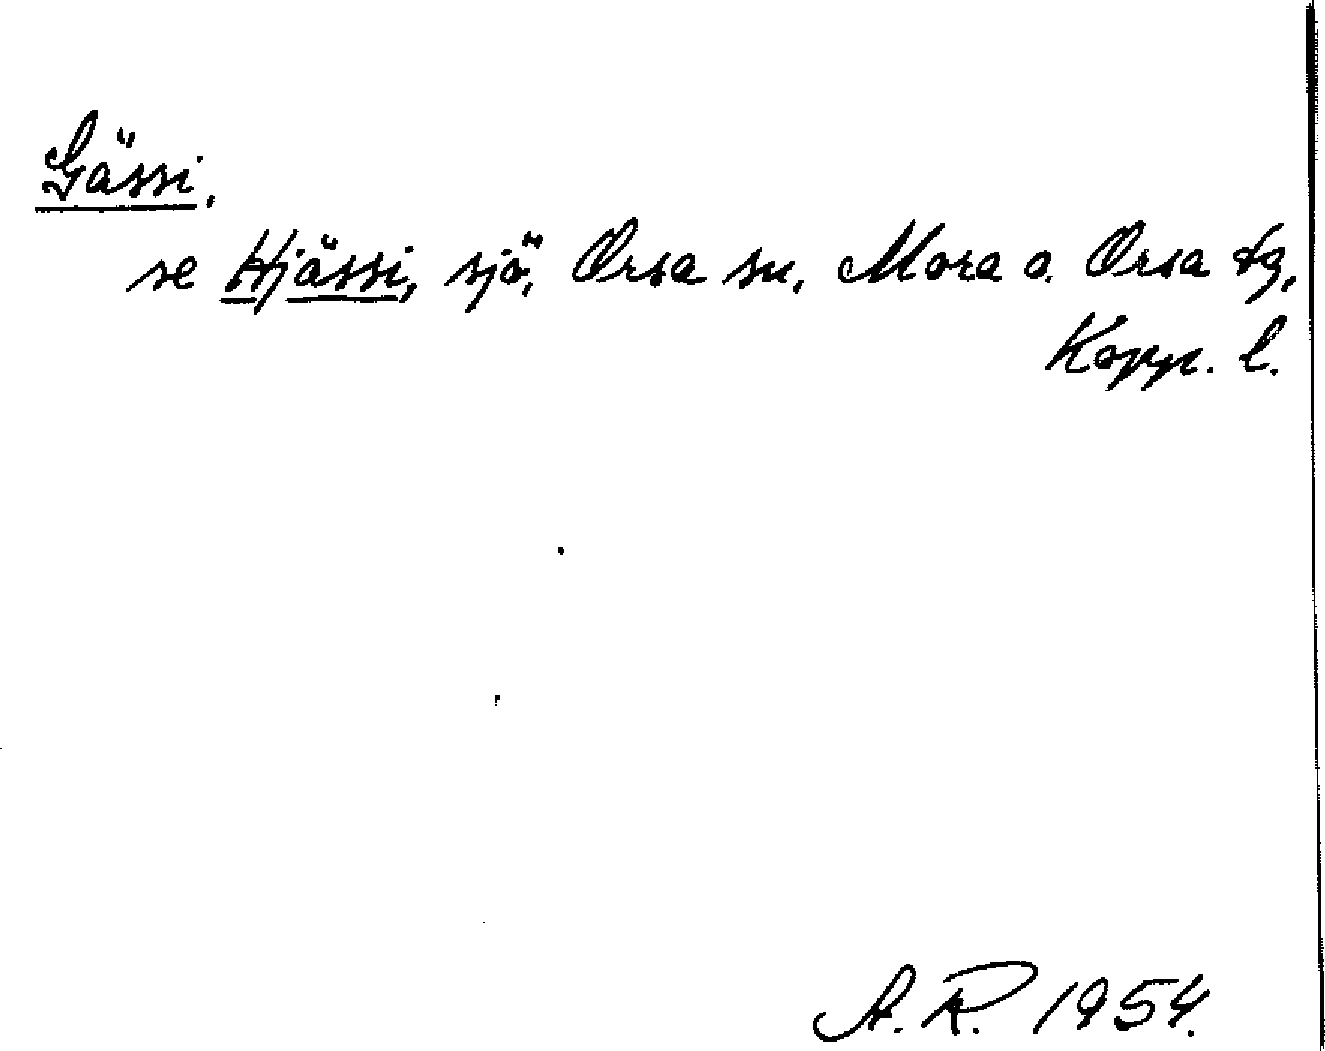 Gässi,
se Hjässi, sjö, Orsa sn, Mora o. Orsa tg,
Kopp. l.
A. R. 1954.